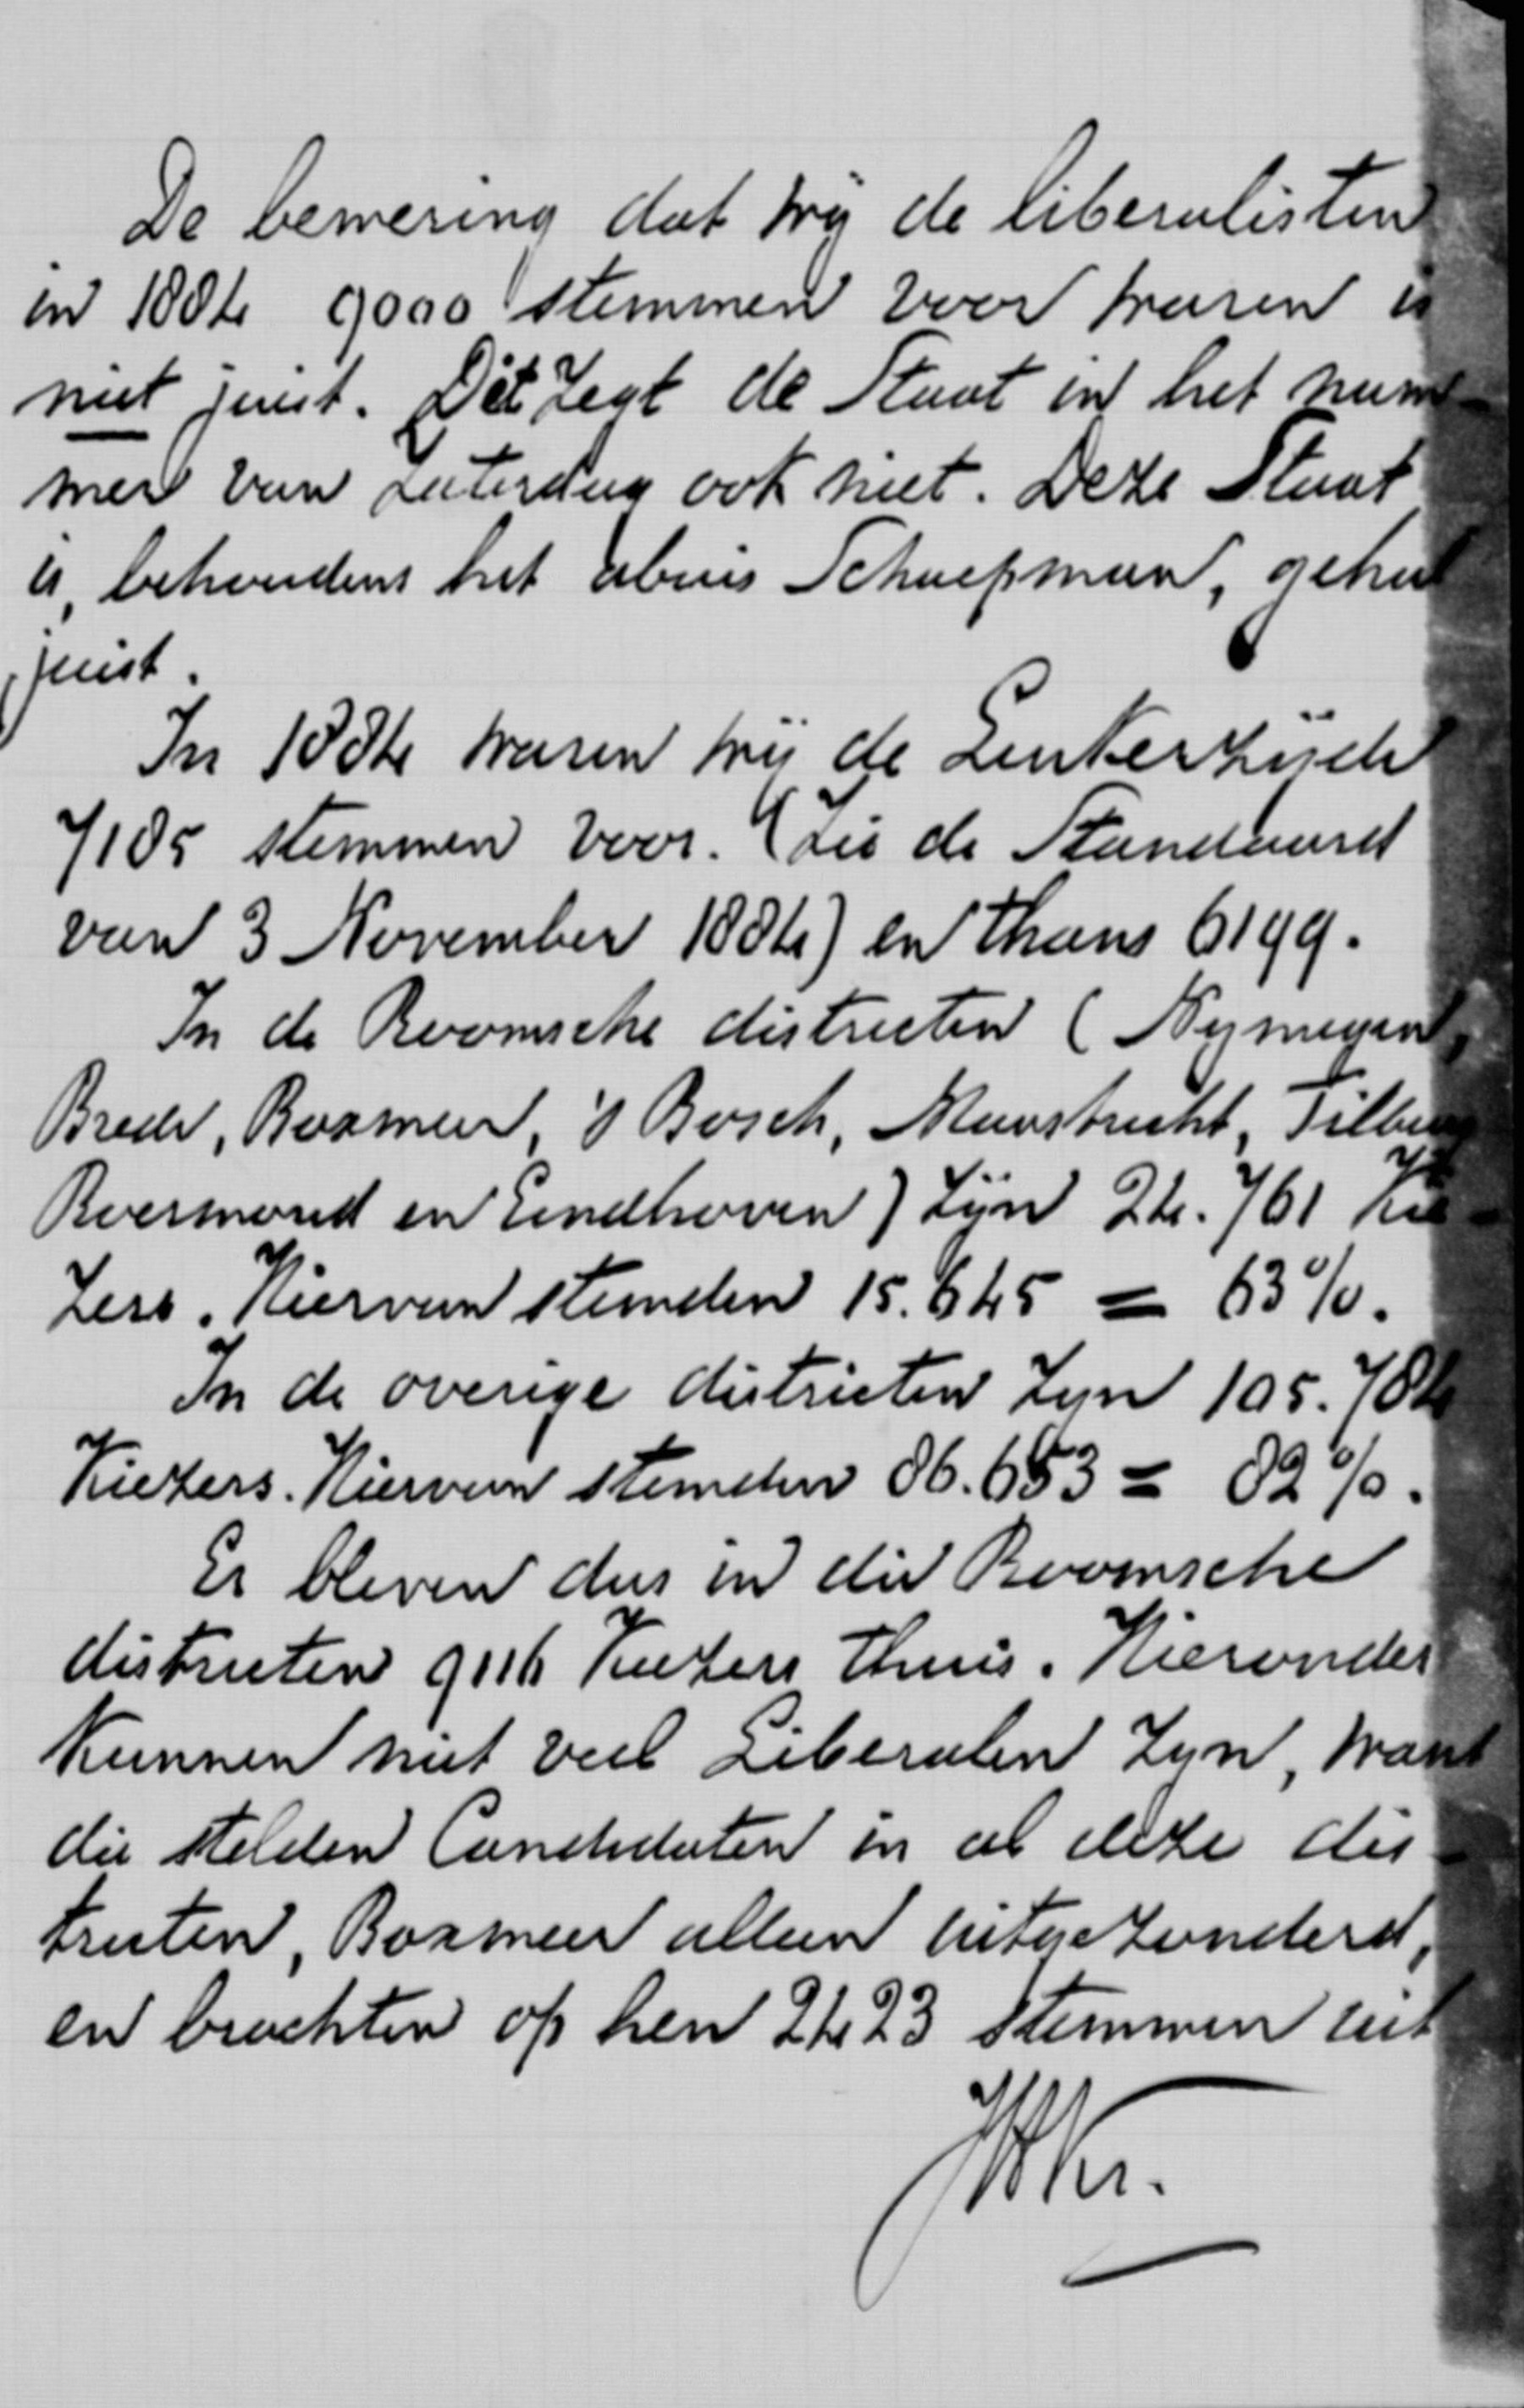 De bewering dat wij de liberalisten
in 1884 9000 stemmen voor waren is
niet juist. Dit zegt de Staat in het num-
mer van Zaterdag ook niet. Deze Staat
is, behoudens het abuis Schaepman, geheel
juist.
In 1884 waren wij de Linkerzijde
7185 stemmen voor. (Zie de Standaard
van 3 November 1884) en thans 6199.
In de Roomsche districten (Nymegen,
Breda, Boxmeer, 's Bosch, Maastricht, Tilburg
Roermond en Eindhoven) zijn 24.761 Kie-
zers. Hiervan stemden 15.645 = 63%.
In de overige districten zyn 105.784
Kiezers. Hiervan stemden 86.653 = 82%.
Er bleven dus in die Roomsche
districten 9116 Kiezers thuis. Hieronder
Kunnen niet veel Liberalen zyn, want
die stelden Candidaten in al deze dis-
tricten, Boxmeer alleen uitgezonderd,
en brachten op hen 2423 stemmen uit